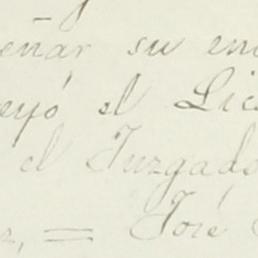 eñar su en
eyó el Lic
el Juzgado
z, = José